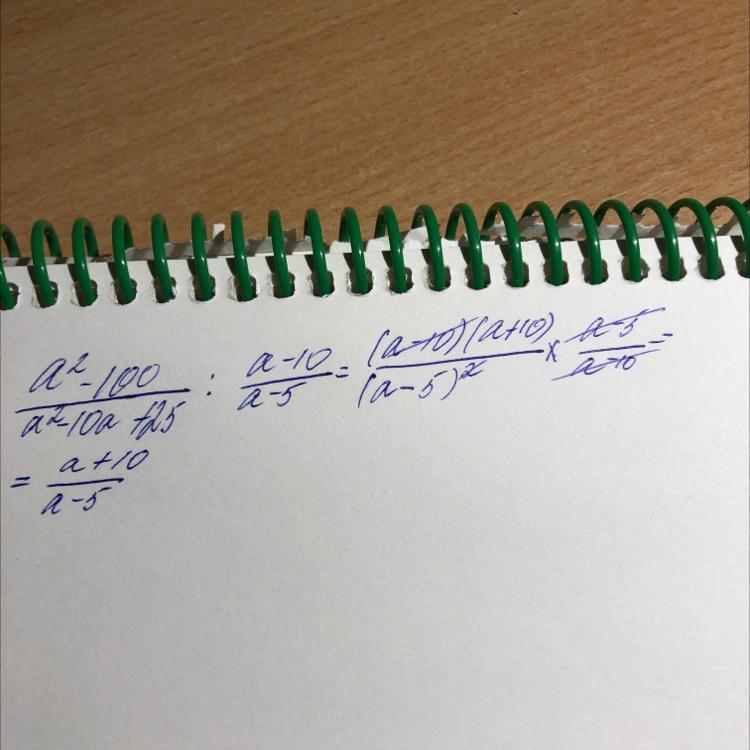 a²-100/a²-10a+25 : a-10/a-5 = (a-10)(a+10)/(a-5)² × a-5/a-10 =
= a+10/a-5